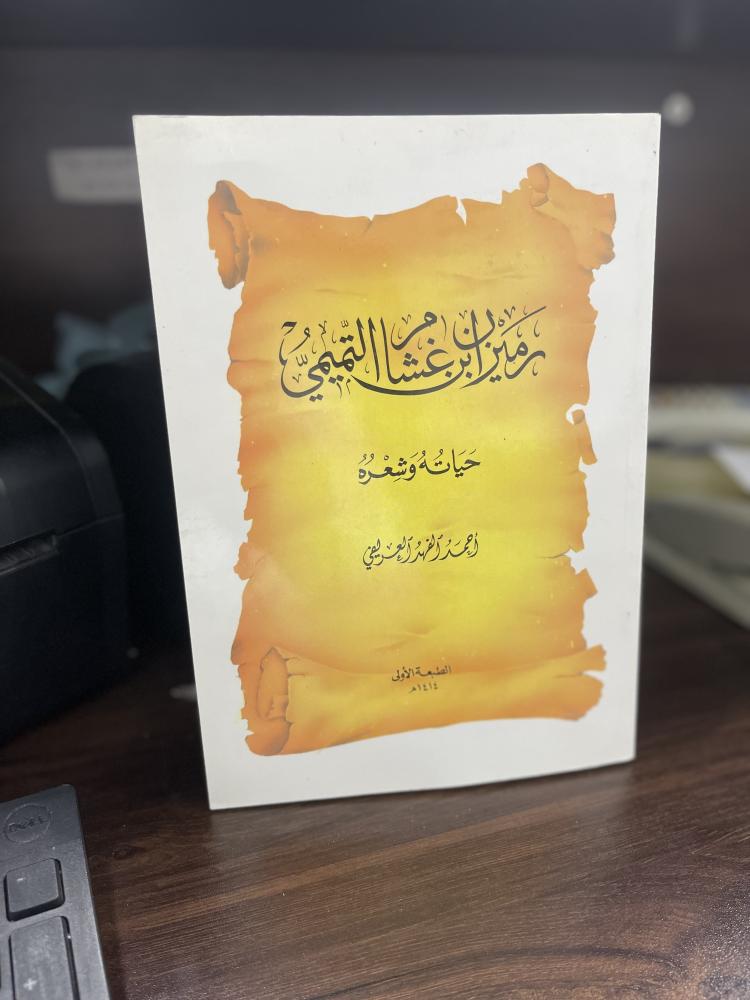 رميزان ابن غشام التميمي
حَيَاتُهُ وَشِعْرُهُ
أحمد الفهد العريفي
الطبعة الأولى
١٤١٤هـ
DELL